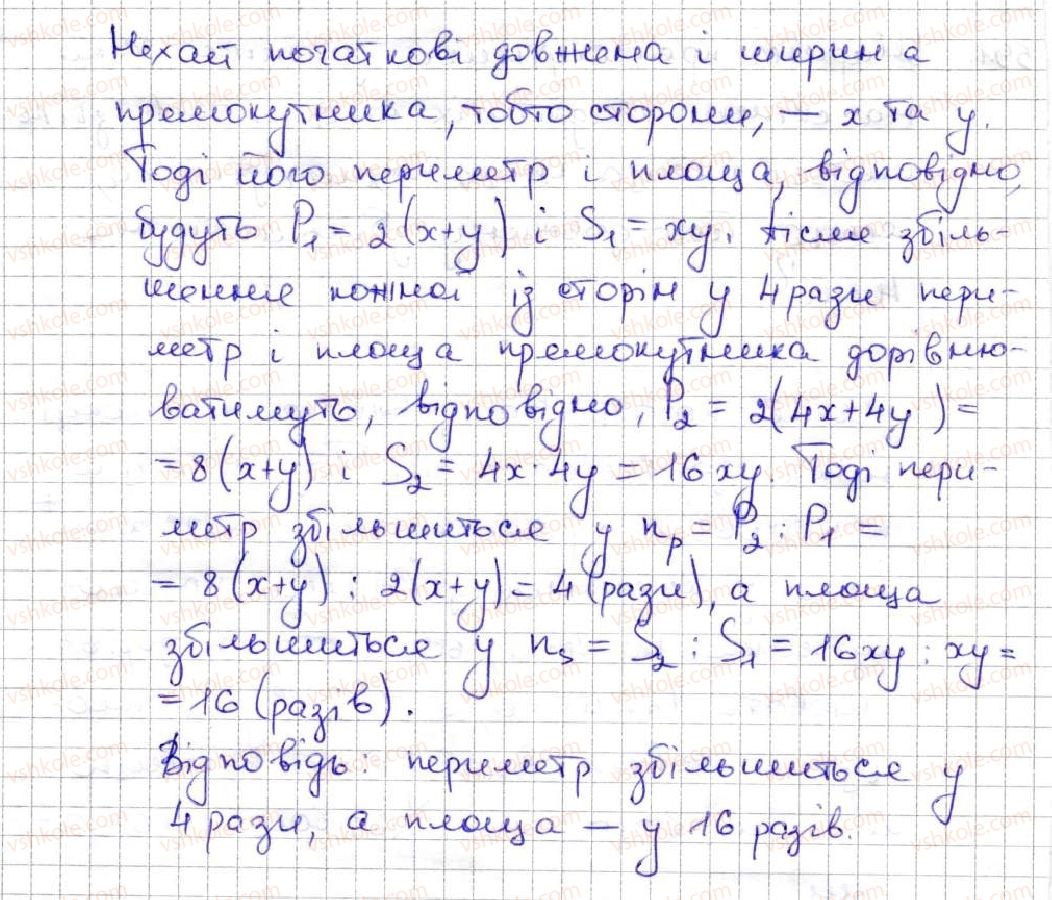 Нехай початкові довжина і ширина
прямокутника, тобто сторони, — x та y.
Тоді його периметр і площа, відповідно,
будуть P₁ = 2(x+y) і S₁ = xy. Після збіль-
шення кожної із сторін у 4 рази пери-
метр і площа прямокутника дорівню-
ватимуть, відповідно, P₂ = 2(4x+4y) =
= 8(x+y) і S₂ = 4x · 4y = 16xy. Тоді пери-
метр збільшиться у nₚ = P₂ : P₁ =
= 8(x+y) : 2(x+y) = 4 (рази), а площа
збільшиться у nₛ = S₂ : S₁ = 16xy : xy =
= 16 (разів).
Відповідь: периметр збільшиться у
4 рази, а площа — у 16 разів.